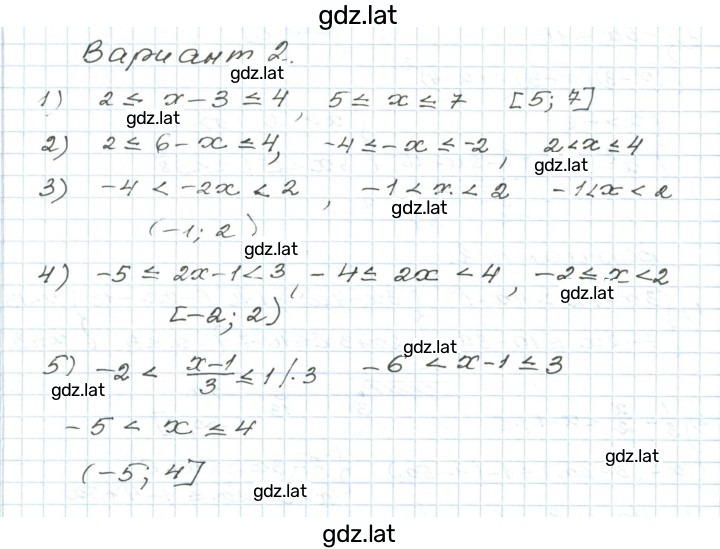 gdz.lat
Вариант 2.
gdz.lat
1) 2 ≤ x-3 ≤ 4, 5 ≤ x ≤ 7 [5; 7]
gdz.lat
2) 2 ≤ 6-x ≤ 4, -4 ≤ -x ≤ -2, 2<x ≤ 4
gdz.lat
3) -4 < -2x < 2, -1 < x < 2 -1<x < 2
gdz.lat
(-1; 2)
gdz.lat
4) -5 ≤ 2x-1<3, -4 ≤ 2x < 4, -2 ≤ x <2
gdz.lat
[-2; 2)
gdz.lat
5) -2 < (x-1)/3 ≤ 1 /·3 -6 < x-1 ≤ 3
gdz.lat
-5 < x ≤ 4
gdz.lat
(-5; 4]
gdz.lat
gdz.lat